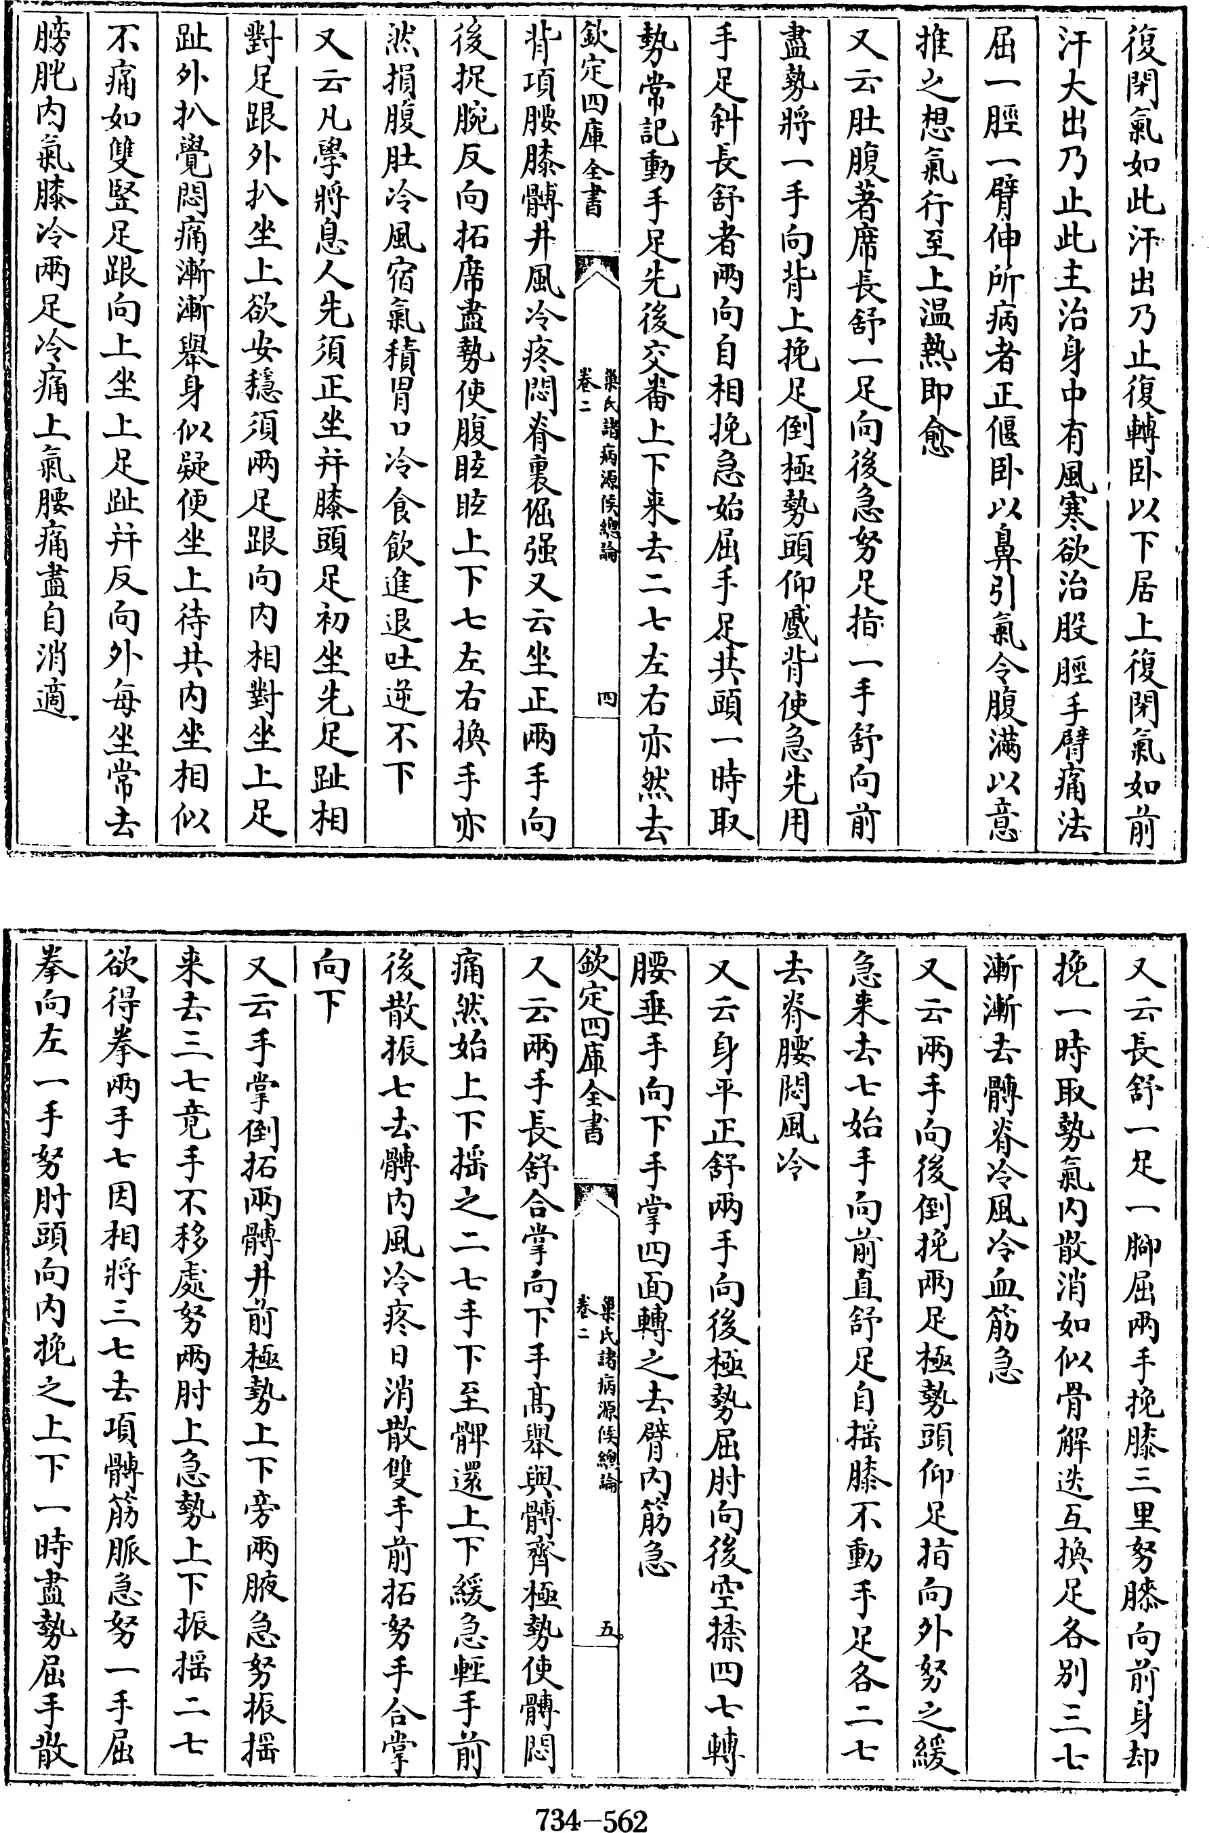 復閉氣如此汗出乃止復轉卧以下居上復閉氣如前
汗大出乃止此主治身中有風寒欲治股脛手臂痛法
屈一脛一臂伸所病者正偃卧以鼻引氣令腹滿以意
推之想氣行至上温熱即愈
又云肚腹著席長舒一足向後急努足指一手舒向前
盡勢將一手向背上挽足倒極勢頭仰蹙背使急先用
手足斜長舒者兩向自相挽急始屈手足共頭一時取
勢常記動手足先後交番上下来去二七左右亦然去
欽定四庫全書
巢氏諸病源候總論
卷二
四
背項腰膝髆井風冷疼悶脊裏倔强又云坐正兩手向
後捉腕反向拓席盡勢使腹眩眩上下七左右換手亦
然損腹肚冷風宿氣積胃口冷食飲進退吐逆不下
又云凡學將息人先須正坐并膝頭足初坐先足趾相
對足跟外扒坐上欲安穩須兩足跟向内相對坐上足
趾外扒覺悶痛漸漸舉身似疑便坐上待共内坐相似
不痛如雙竪足跟向上坐上足趾并反向外每坐常去
膀胱内氣膝冷兩足冷痛上氣腰痛盡自消適
又云長舒一足一脚屈兩手挽膝三里努膝向前身却
挽一時取勢氣内散消如似骨解迭互換足各别三七
漸漸去髆脊冷風冷血筋急
又云兩手向後倒挽兩足極勢頭仰足指向外努之緩
急来去七始手向前直舒足自摇膝不動手足各二七
去脊腰悶風冷
又云身平正舒兩手向後極勢屈肘向後空捺四七轉
腰垂手向下手掌四面轉之去臂内筋急
欽定四庫全書
巢氏諸病源候總論
卷二
五
又云兩手長舒合掌向下手髙舉與髆齊極勢使髆悶
痛然始上下揺之二七手下至髀還上下緩急輕手前
後散振七去髆内風冷疼日消散雙手前拓努手合掌
向下
又云手掌倒拓兩髆井前極勢上下旁兩腋急努振揺
来去三七竟手不移處努兩肘上急勢上下振揺二七
欲得拳兩手七因相將三七去項髆筋脈急努一手屈
拳向左一手努肘頭向内挽之上下一時盡勢屈手散
734-562